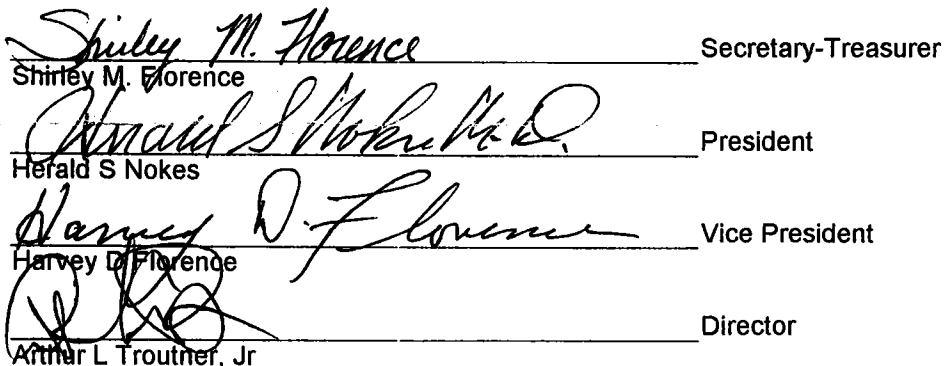 Shirley M. Florence Secretary-Treasurer
Shirley M. Florence
Herald S Nokes M.D. President
Herald S Nokes
Harvey D. Florence Vice President
Harvey D Florence
Director
Arthur L Troutner, Jr